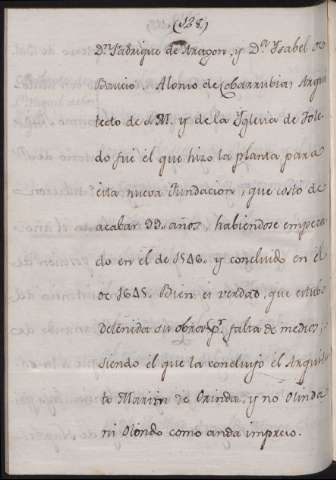 (128)
Dn. Fadrique de Aragon, y Da. Ysabel de
Baucio. Alonso de Cobarrubias Arqui
tecto de S. M. y de la Yglesia de Tole
do fué él que hizo la planta para
esta nueva Fundacion, que costó de
acabar 99. años, habiendose empeza
do en él de 1546. y concluido en él
de 1645. Bien es verdad, que estubo
detenida su obra pr. falta de medios,
siendo él que la concluyó él Arquitec
to Martin de Orinda, y no Olinda
ni Olondo como anda impreso.